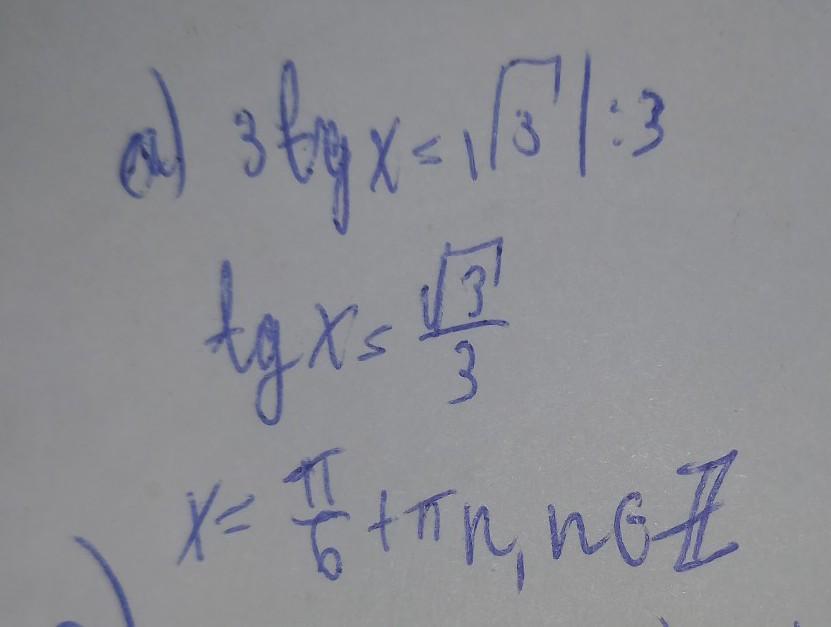 а) 3tg x = √3 | : 3
tg x = √3/3
x = π/6 + πn, n ∈ ℤ
)